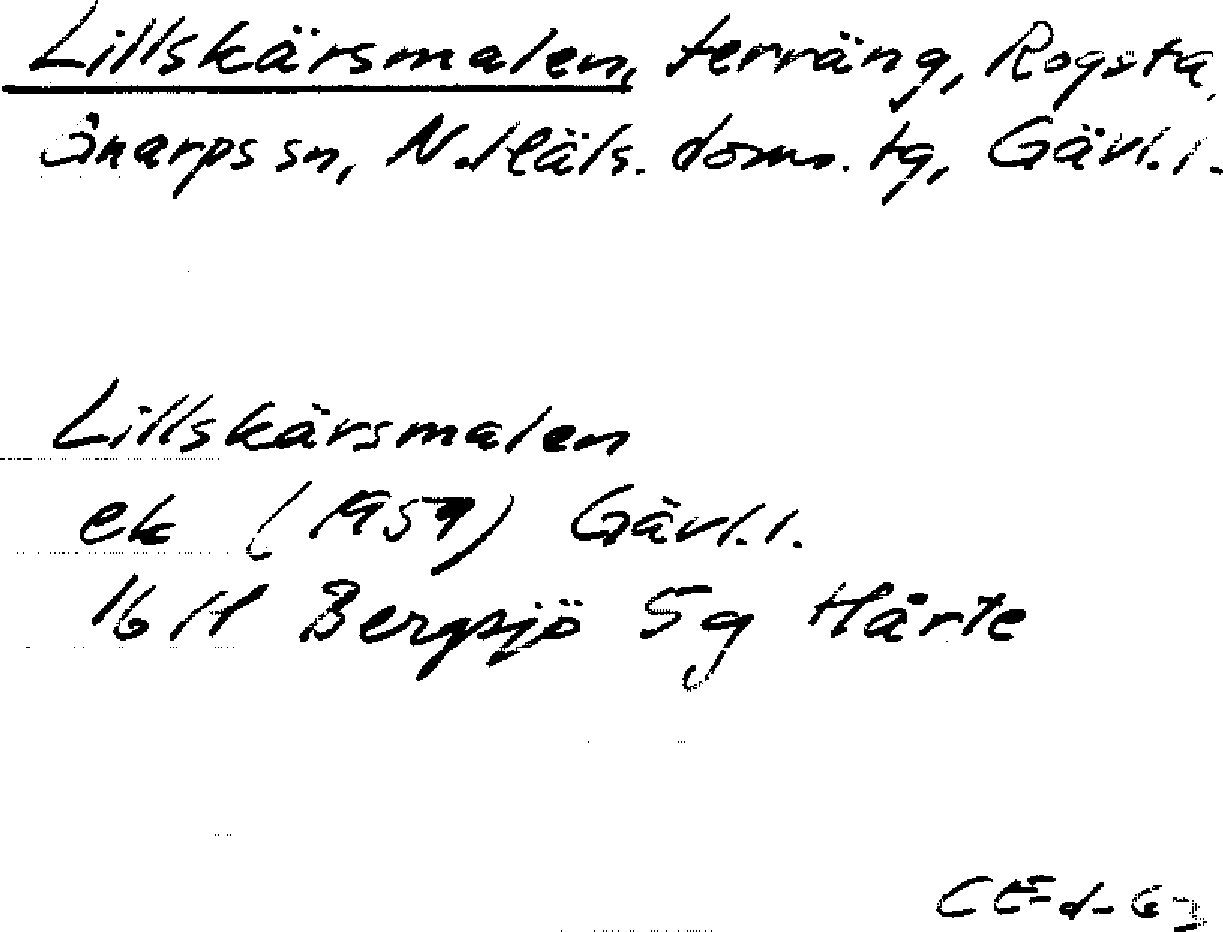 Lillskärsmalen, terräng, Rogsta,
Gnarps sn, N. Häls. doms. tg, Gävl. l.
Lillskärsmalen
ek (1959) Gävl. l.
16 H Bergsjö 5g Hårte